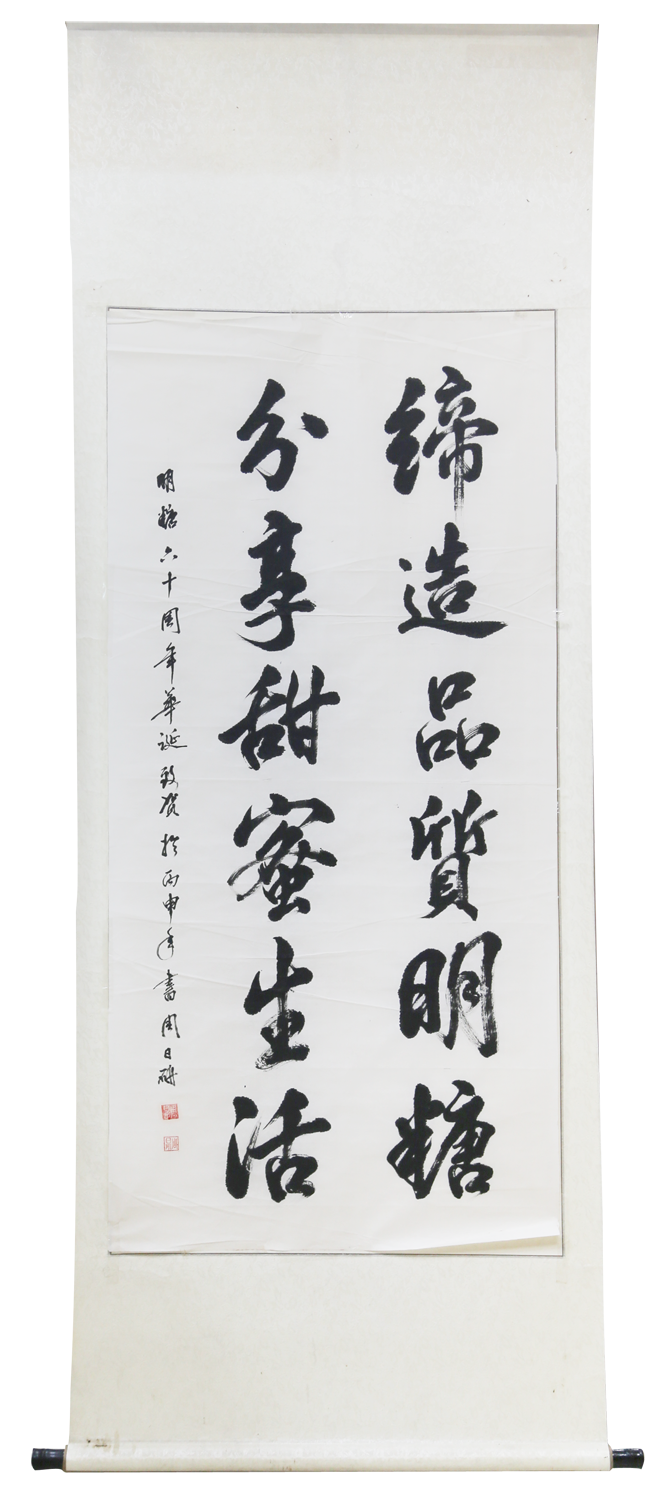 缔造品質明糖
分享甜蜜生活
明糖六十周年華诞致贺於丙申年書周日研